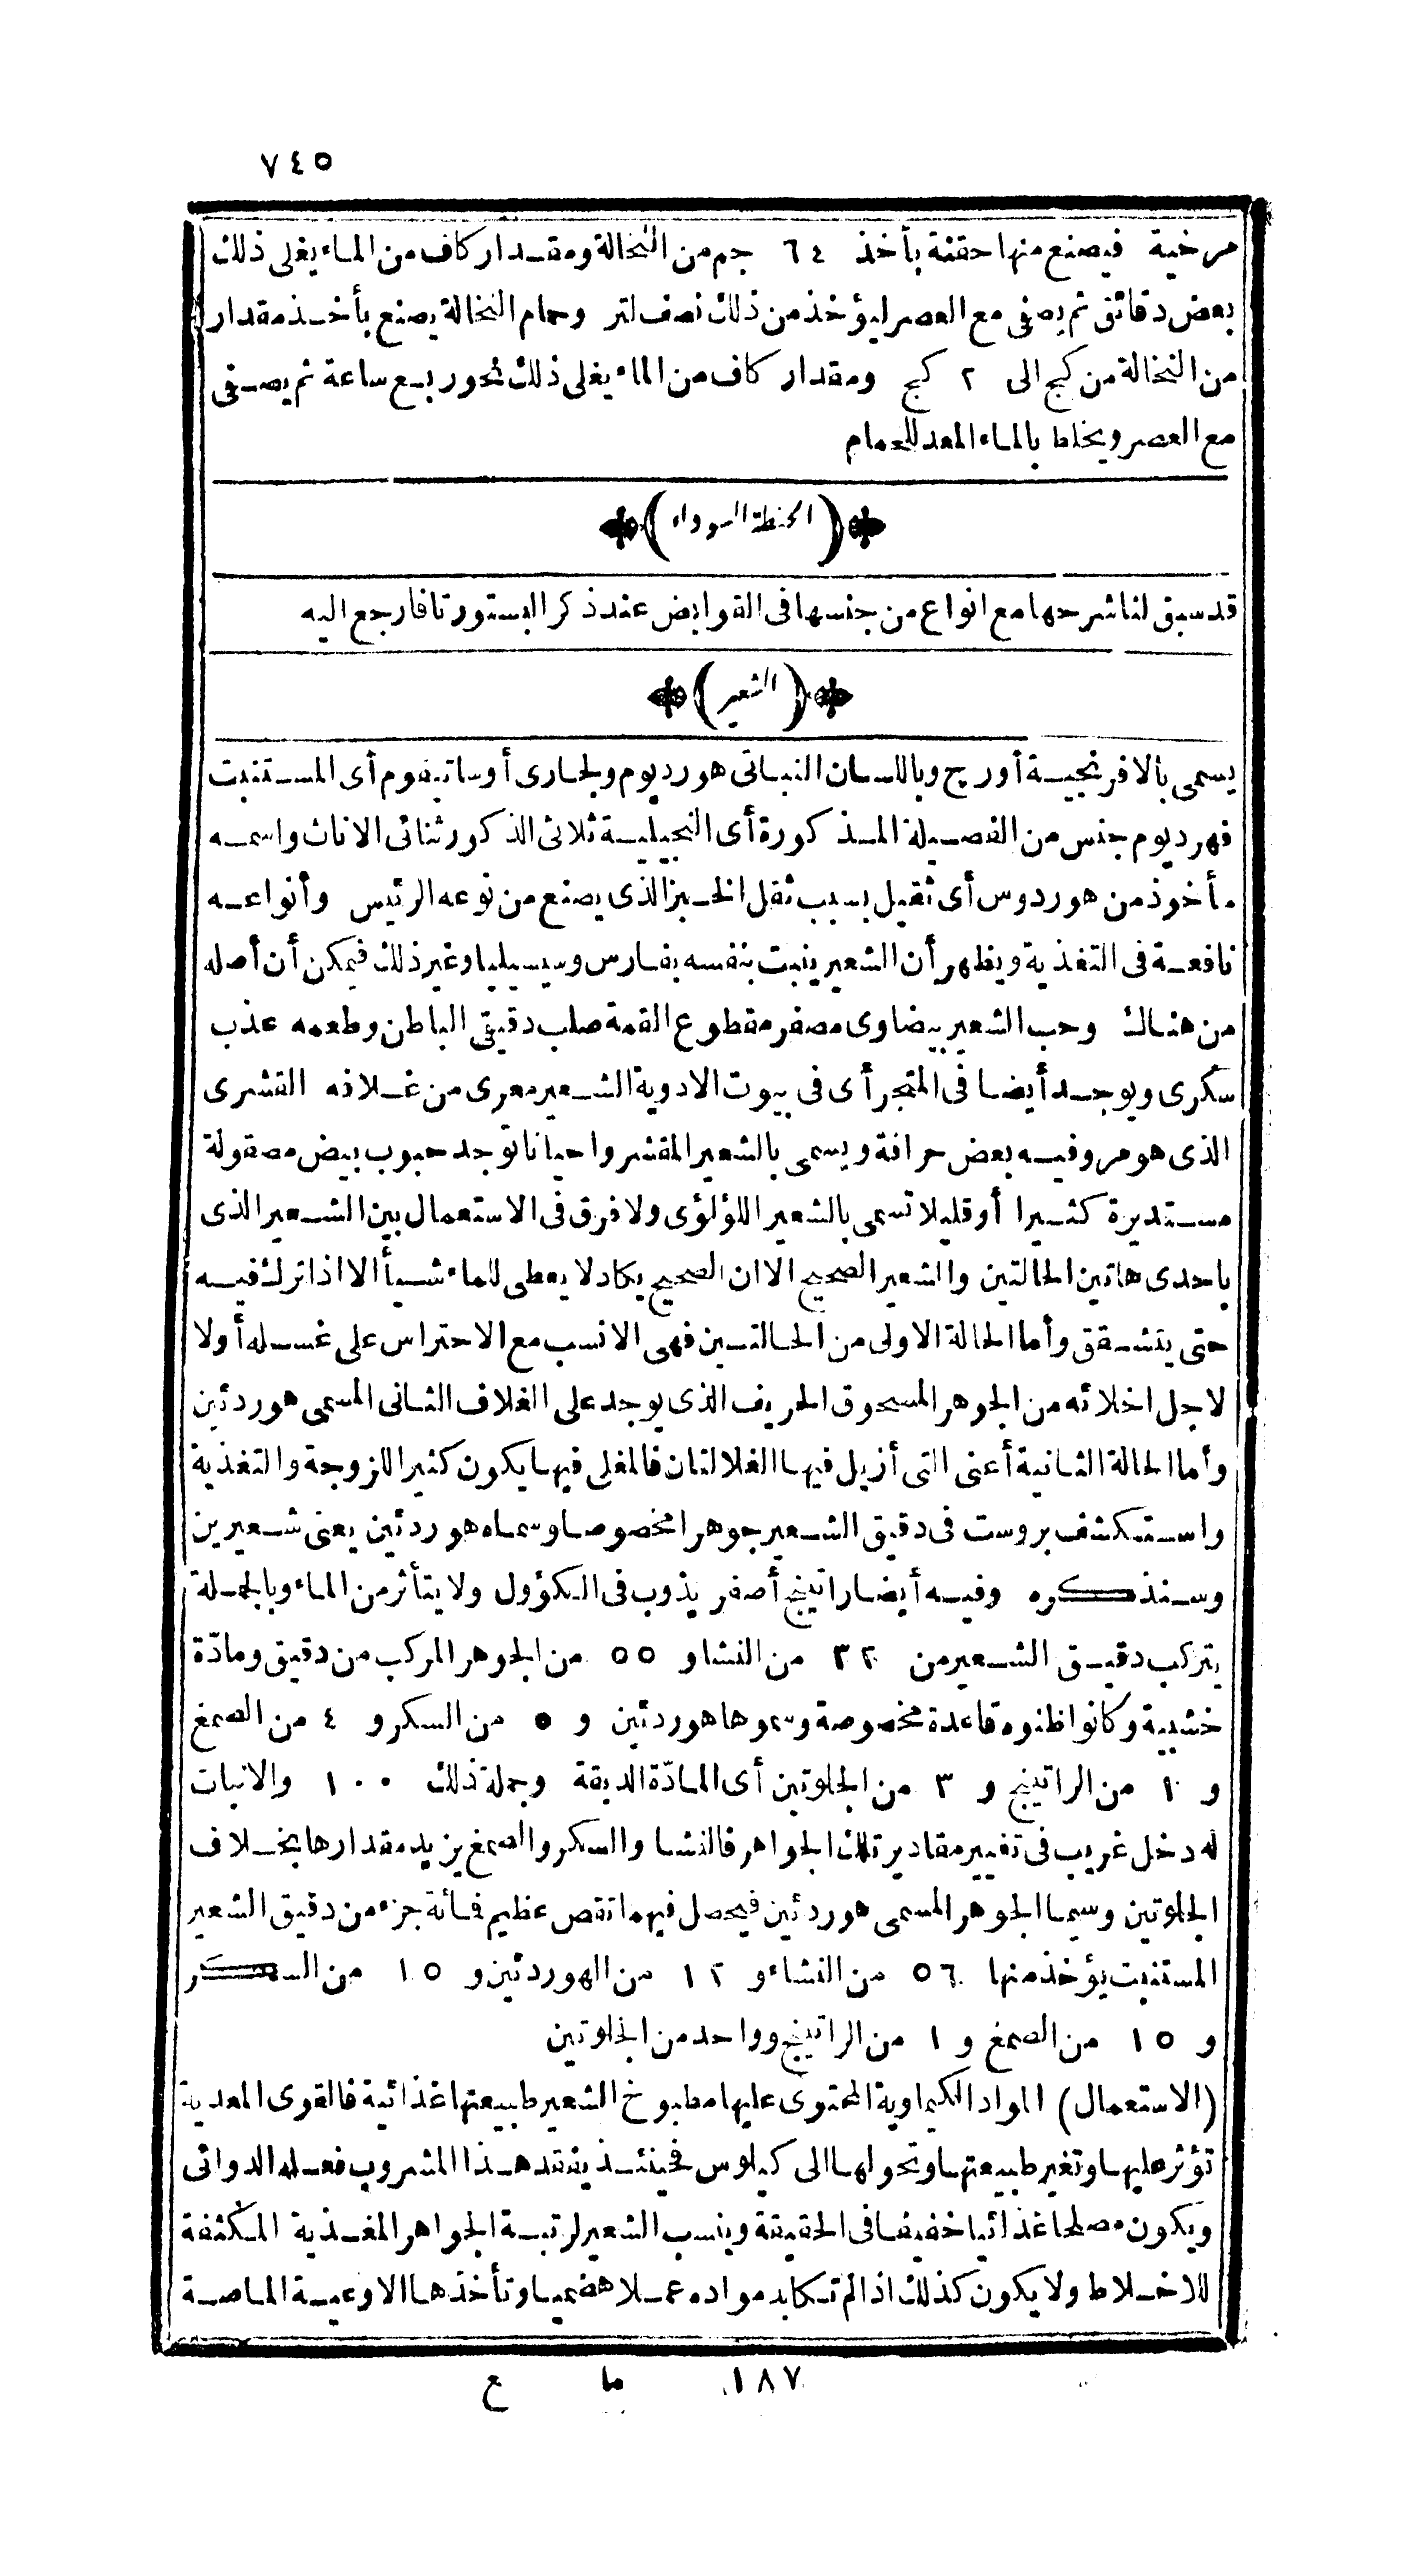 ٧٤٥
مرخية فيصنع منها حقنة بأخذ ٦٤ جم من النخالة ومقدار كاف من الماء يغلى ذلك
بعض دقائق ثم يصفى مع العصر ليؤخذ من ذلك نصف لتر وحمام النخالة يصنع بأخذ مقدار
من النخالة من كج الى ٢ كج ومقدار كاف من الماء يغلى ذلك نحو ربع ساعة ثم يصفى
مع العصر ويخلط بالماء المعد للحمام
(الحنطة السوداء)
قد سبق لنا شرحها مع انواع من جنسها فى القوابض عند ذكر البستورتا فارجع اليه
(الشعير)
يسمى بالافرنجية أورج وباللسان النباتى هورديوم ولجارى أوساتيفوم أى المستنبت
فهرديوم جنس من الفصيلة المذكورة أى النجيلية ثلاثى الذكور ثنائى الاناث واسمه
مأخوذ من هوردوس أى ثقيل بسبب ثقل الخبز الذى يصنع من نوعه الرئيس وأنواعه
نافعة فى التغذية ويظهر أن الشعير ينبت بنفسه بفارس وسيسيليا وغير ذلك فيمكن أن أصله
من هنالك وحب الشعير بيضاوى مصفر مقطوع القمة صلب دقيقى الباطن وطعمه عذب
سكرى ويوجد أيضا فى المتجر أى فى بيوت الادوية الشعير معرى من غلافه القشرى
الذى هو مر وفيه بعض حرافة ويسمى بالشعير المقشر واحيانا توجد حبوب بيض مصقولة
مستديرة كثيرا أو قليلا تسمى بالشعير اللؤلؤى ولا فرق فى الاستعمال بين الشعير الذى
باحدى هاتين الحالتين والشعير الصحيح الا ان الصحيح يكاد لا يعطى للماء شيأ الا اذا ترك فيه
حتى يتشقق وأما الحالة الاولى من الحالتين فهى الانسب مع الاحتراس على غسله أولا
لاجل اخلائه من الجوهر المسحوق الحريف الذى يوجد على الغلاف الثانى المسمى هوردئين
وأما الحالة الثانية أعنى التى أزيل فيها الغلالتان فالمغلى فيها يكون كثير اللزوجة والتغذية
واستكشف بروست فى دقيق الشعير جوهرا مخصوصا وسماه هوردئين يعنى شعيرين
وسنذكره وفيه أيضا راتينج أصفر يذوب فى الكؤول ولا يتأثر من الماء وبالجملة
يتركب دقيق الشعير من ٣٢ من النشا و ٥٥ من الجوهر المركب من دقيق ومادّة
خشبية وكانوا ظنوه قاعدة مخصوصة وسموها هوردئين و ٥ من السكر و ٤ من الصمغ
و ١ من الراتينج و ٣ من الجلوتين أى المادّة الدبقة وجملة ذلك ١٠٠ والانبات
له دخل غريب فى تغيير مقادير تلك الجواهر فالنشا والسكر والصمغ يزيد مقدارها بخلاف
الجلوتين وسيما الجوهر المسمى هوردئين فيحصل فيهما نقص عظيم فمائة جزء من دقيق الشعير
المستنبت يؤخذ منها ٥٦ من النشاء و ١٢ من الهوردئين و ١٥ من السكر
و ١٥ من الصمغ و ١ من الراتينج وواحد من الجلوتين
(الاستعمال) المواد الكيماوية المحتوى عليها مطبوخ الشعير طبيعتها غذائية فالقوى المعدية
تؤثر عليها وتغير طبيعتها وتحولها الى كيلوس فحينئذ يفقد هذا المشروب فعله الدوائى
ويكون مصلحا غذائيا خفيفا فى الحقيقة وينسب الشعير لرتبة الجواهر المغذية المكثفة
للاخلاط ولا يكون كذلك اذا لم تكابد مواده عملا هضميا وتأخذها الاوعية الماصة
١٨٧ ما ع